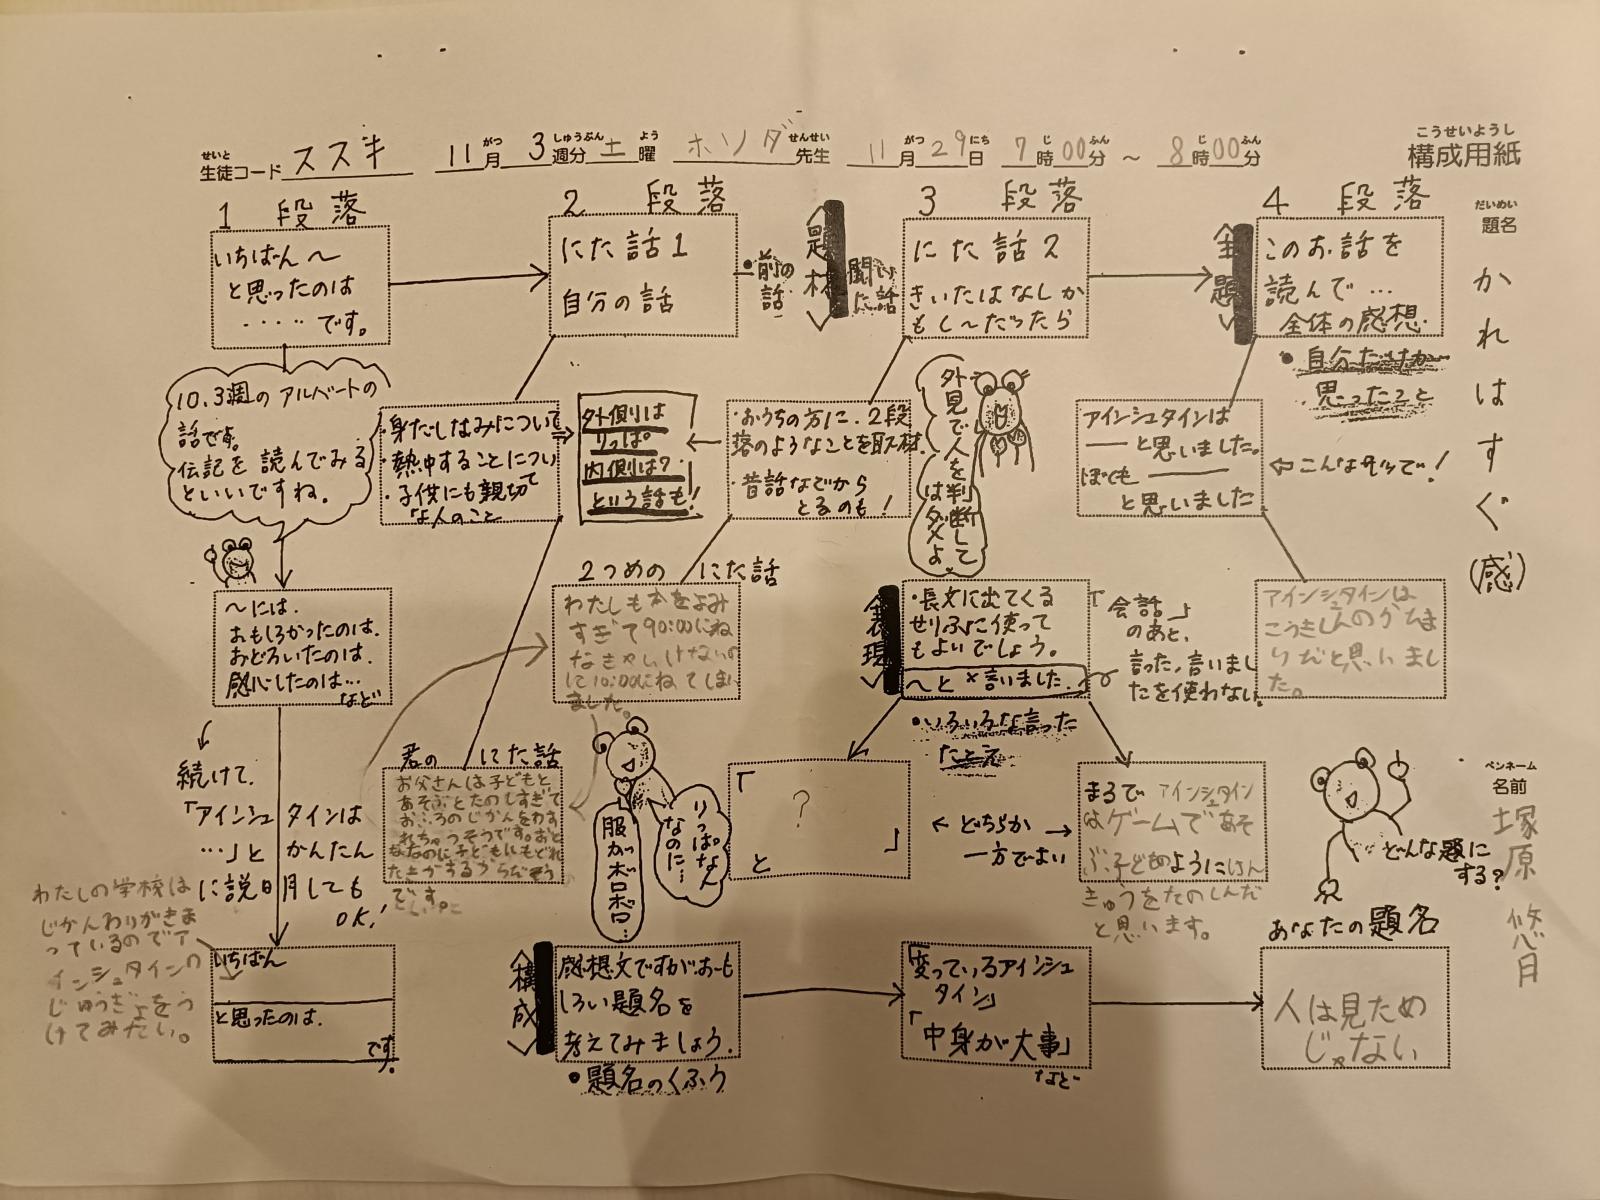 こうせいようし
構成用紙
せいと
生徒コード ススキ 11月 3週分 土曜 ホソダ先生 11月29日 7時00分 ～ 8時00分
がつ しゅうぶん よう せんせい がつ にち じ ふん じ ふん
だいめい
題名
かれはすぐ(感)
ペンネーム
名前
塚原 悠月
1 段落
いちばん～
と思ったのは
・・・・・です。
10.3週のアルベートの
話です。
伝記を読んでみる
といいですね。
～には.
おもしろかったのは.
おどろいたのは.
感心したのは…
など
続けて.
「アインシュタインは
…」とかんたん
に説明しても
OK!
わたしの学校は
じかんわりがきま
っているのでア
インシュタインの
じゅうぎょをう
けてみたい。
いちばん
と思ったのは.
です.
2 段落
にた話1
自分の話
・前の
話
・身だしなみについて
・熱中することについ
て
・子供にも親切
な人のこと
外側は
りっぱ
内側は?
という話も!
君の にた話
お父さんは子どもと
あそぶとたのしすぎて
おふろのじかんをわす
れちゃうそうです。おと
です。
〈題材〉
聞い
た話
3 段落
にた話2
きいたはなしか
もし～だったら
・おうちの方に.2段
落のようなことを取材.
・昔話などから
とるのも!
2つめの にた話
わたしも本をよみ
すぎて90:00にね
なきゃいけないの
に10:00にねてしまい
ました。
外見で人を判断して
はダメよ
りっぱな人
なのに…
服がボロボロ…
〈表現〉
・長文に出てくる
せりふに使って
もよいでしょう。
～と×言いました.
「会話」
のあと、
言った,言いまし
たを使わない
・いろいろな言った
・たとえ
「
?
」
と
← どちらか →
一方でよい
まるでアインシュタイン
はゲームであそ
ぶ子どものようにけん
きゅうをたのしんだ
と思います。
〈主題〉
4 段落
このお話を
読んで…
全体の感想.
・自分だけが
思ったこと
アインシュタインは
――と思いました。
ぼくも――
と思いました
⇦こんな形で!
アインシュタインは
こうきしんのかたま
りだと思いまし
た。
〈構成〉
感想文ですがおも
しろい題名を
考えてみましょう.
・題名のくふう
「変っているアインシュ
タイン」
「中身が大事」
など
どんな題に
する?
あなたの題名
人は見ため
じゃない